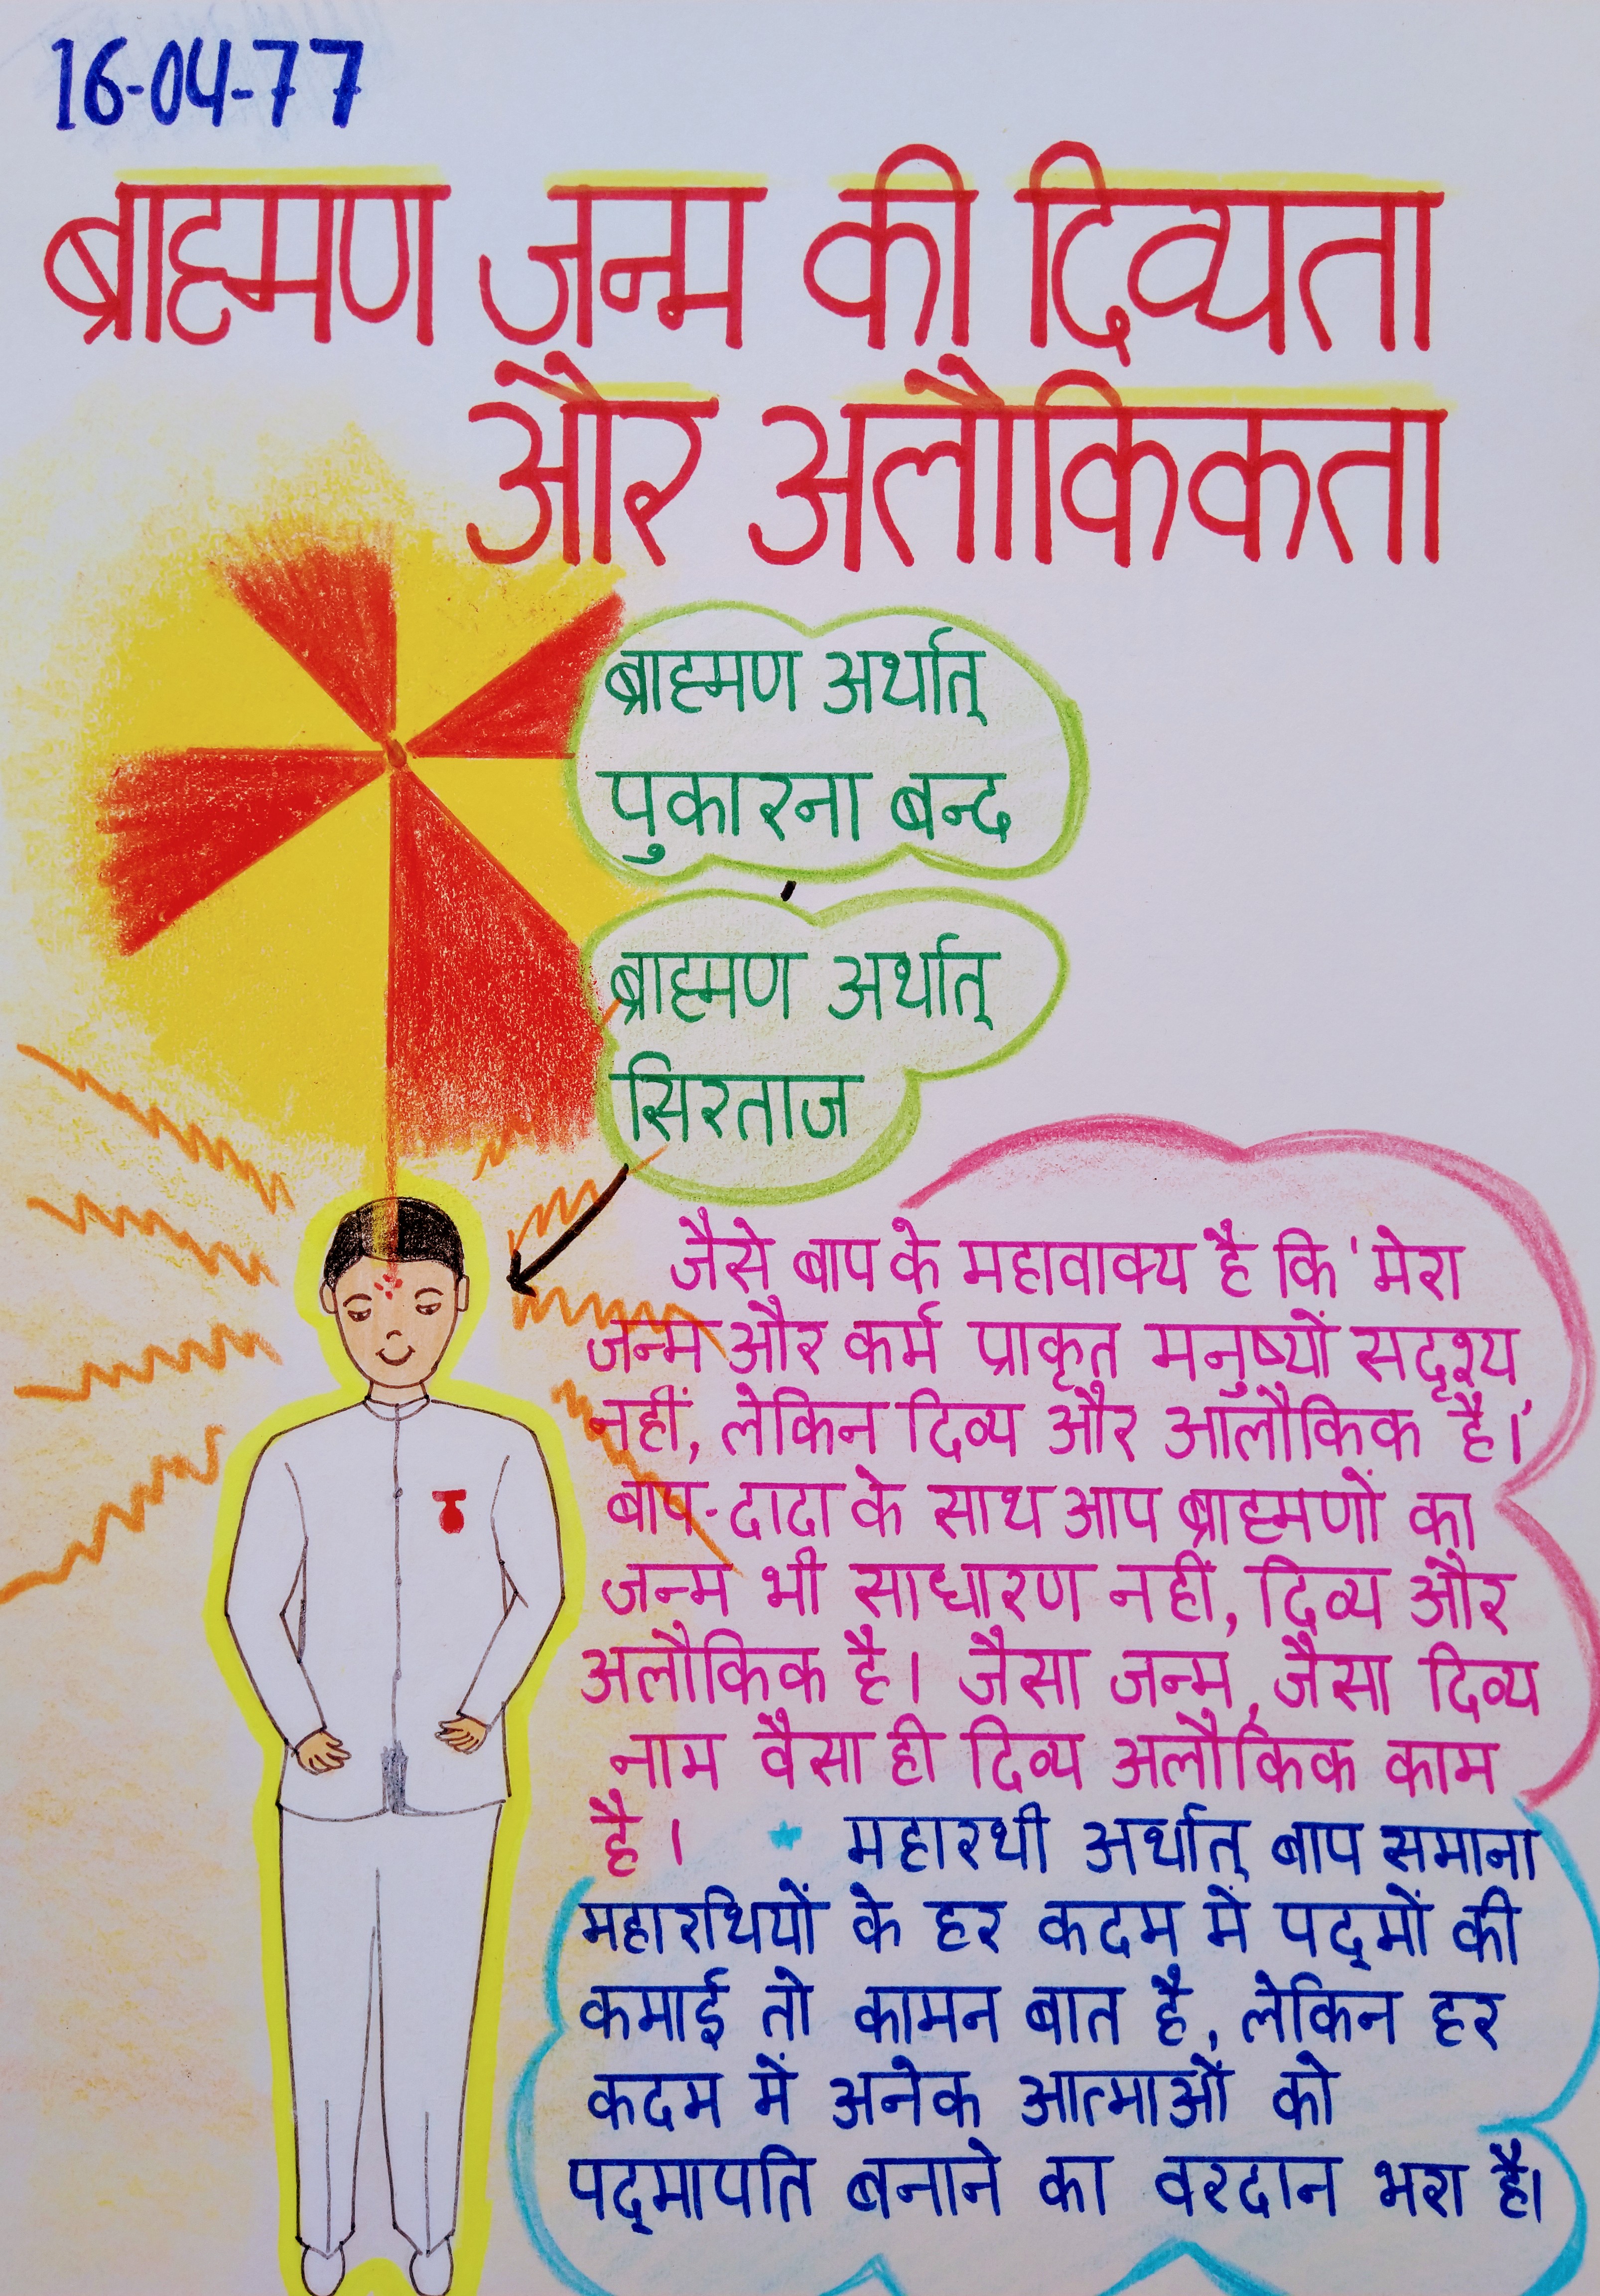 16-04-77
ब्राह्मण जन्म की दिव्यता
और अलौकिकता
ब्राह्मण अर्थात्
पुकारना बन्द
ब्राह्मण अर्थात्
सिरताज
जैसे बाप के महावाक्य है कि 'मेरा
जन्म और कर्म प्राकृत मनुष्यों सदृश्य
नहीं, लेकिन दिव्य और आलौकिक है।'
बाप-दादा के साथ आप ब्राह्मणों का
जन्म भी साधारण नहीं, दिव्य और
अलौकिक है। जैसा जन्म, जैसा दिव्य
नाम वैसा ही दिव्य अलौकिक काम
है।
* महारथी अर्थात् बाप समाना
महारथियों के हर कदम में पद्मों की
कमाई तो कामन बात है, लेकिन हर
कदम में अनेक आत्माओं को
पद्मापति बनाने का वरदान भरा है।